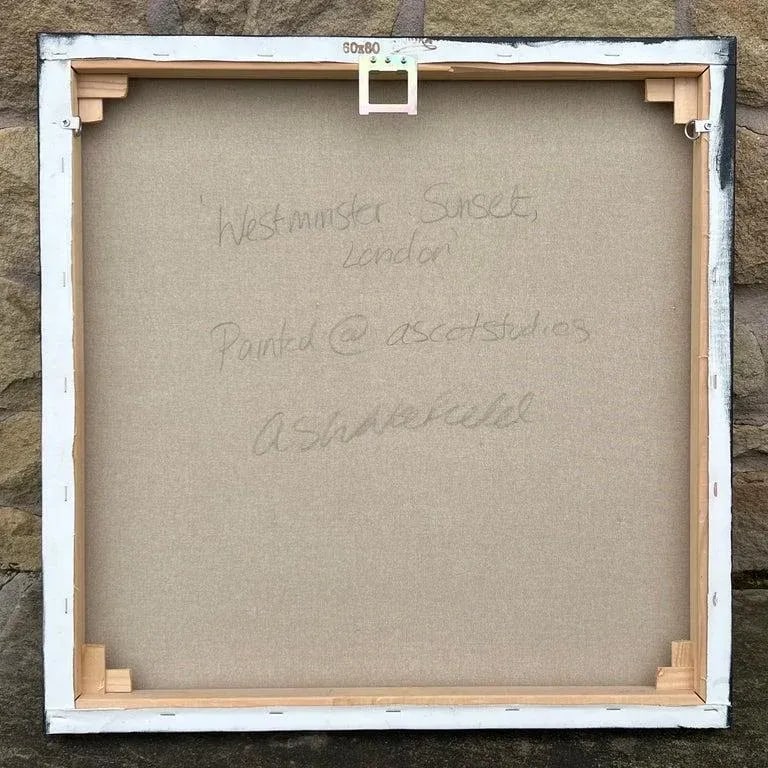 60x60
'Westminster Sunset,
London'
Painted @ ascotstudios